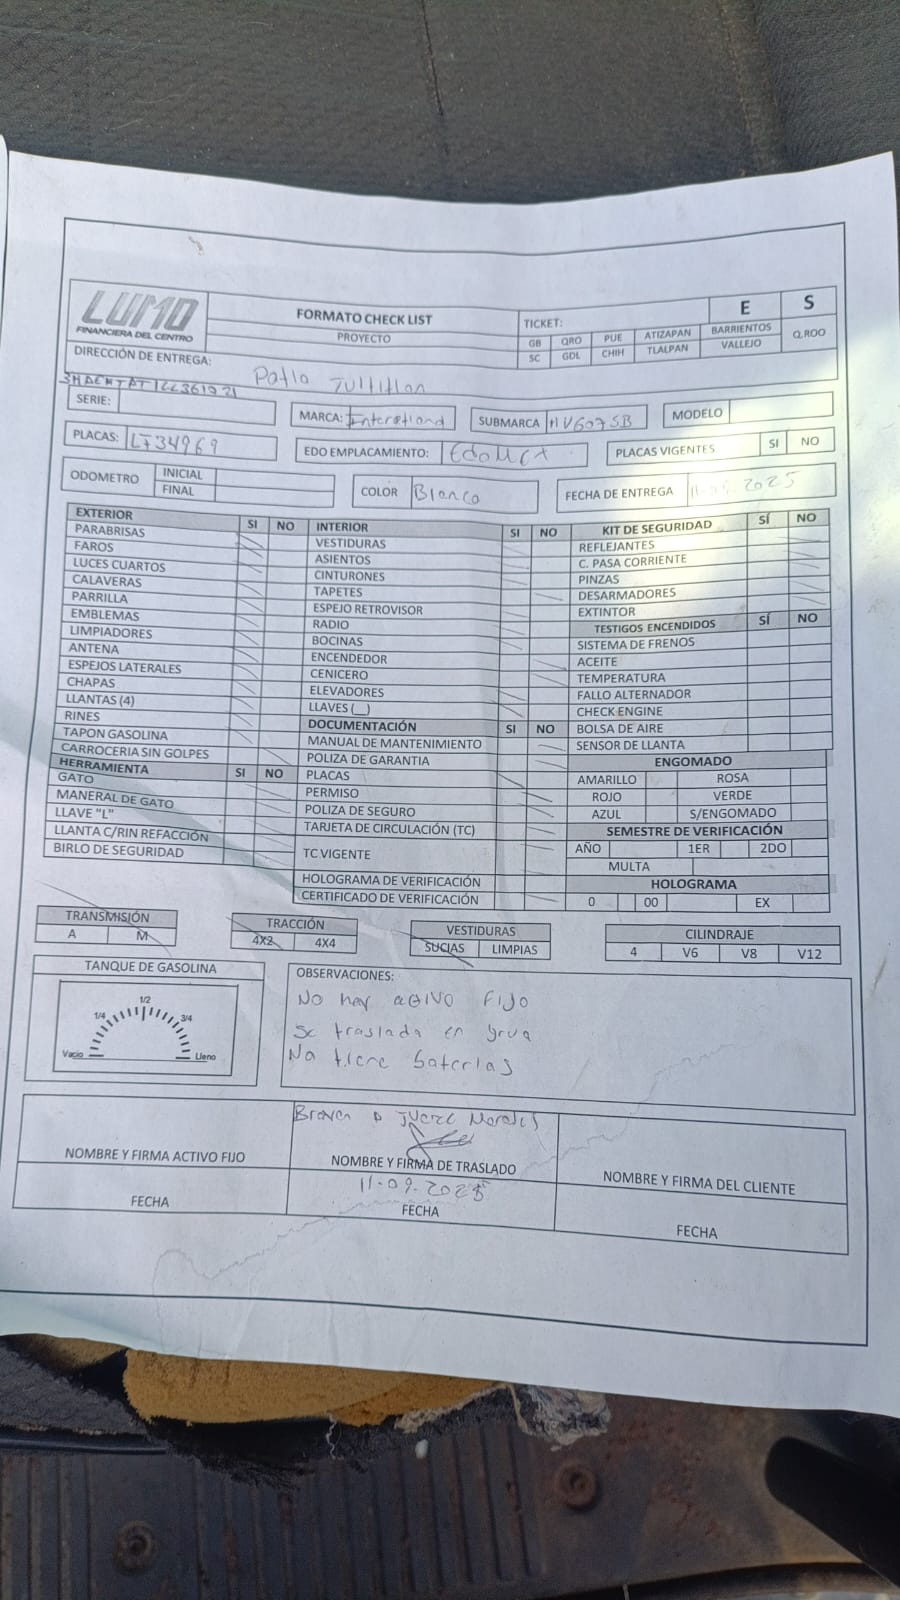 LUMO
FINANCIERA DEL CENTRO
FORMATO CHECK LIST
PROYECTO
TICKET:
E
S
GB QRO PUE ATIZAPAN BARRIENTOS Q.ROO
SC GDL CHIH TLALPAN VALLEJO
DIRECCIÓN DE ENTREGA:
Patio Tultitlan
SERIE:
MARCA:
SUBMARCA MV607SB
MODELO
PLACAS: LF34969
EDO EMPLACAMIENTO: EdoMex
PLACAS VIGENTES SI NO
ODOMETRO INICIAL
FINAL
COLOR Blanco
FECHA DE ENTREGA 11-09-2025
EXTERIOR SI NO
PARABRISAS
FAROS
LUCES CUARTOS
CALAVERAS
PARRILLA
EMBLEMAS
LIMPIADORES
ANTENA
ESPEJOS LATERALES
CHAPAS
LLANTAS (4)
RINES
TAPON GASOLINA
CARROCERIA SIN GOLPES
HERRAMIENTA SI NO
GATO
MANERAL DE GATO
LLAVE "L"
LLANTA C/RIN REFACCIÓN
BIRLO DE SEGURIDAD
INTERIOR SI NO
VESTIDURAS
ASIENTOS
CINTURONES
TAPETES
ESPEJO RETROVISOR
RADIO
BOCINAS
ENCENDEDOR
CENICERO
ELEVADORES
LLAVES (__)
DOCUMENTACIÓN SI NO
MANUAL DE MANTENIMIENTO
POLIZA DE GARANTIA
PLACAS
PERMISO
POLIZA DE SEGURO
TARJETA DE CIRCULACIÓN (TC)
TC VIGENTE
HOLOGRAMA DE VERIFICACIÓN
CERTIFICADO DE VERIFICACIÓN
KIT DE SEGURIDAD SÍ NO
REFLEJANTES
C. PASA CORRIENTE
PINZAS
DESARMADORES
EXTINTOR
TESTIGOS ENCENDIDOS SÍ NO
SISTEMA DE FRENOS
ACEITE
TEMPERATURA
FALLO ALTERNADOR
CHECK ENGINE
BOLSA DE AIRE
SENSOR DE LLANTA
ENGOMADO
AMARILLO ROSA
ROJO VERDE
AZUL S/ENGOMADO
SEMESTRE DE VERIFICACIÓN
AÑO 1ER 2DO
MULTA
HOLOGRAMA
0 00 EX
TRANSMISIÓN
A M
TRACCIÓN
4X2 4X4
VESTIDURAS
SUCIAS LIMPIAS
CILINDRAJE
4 V6 V8 V12
TANQUE DE GASOLINA
1/4 1/2 3/4
Vacio Lleno
OBSERVACIONES:
No hay activo Fijo
Se traslada en grua
No tiene baterias
NOMBRE Y FIRMA ACTIVO FIJO
FECHA
Morales
NOMBRE Y FIRMA DE TRASLADO
11-09-2025
FECHA
NOMBRE Y FIRMA DEL CLIENTE
FECHA